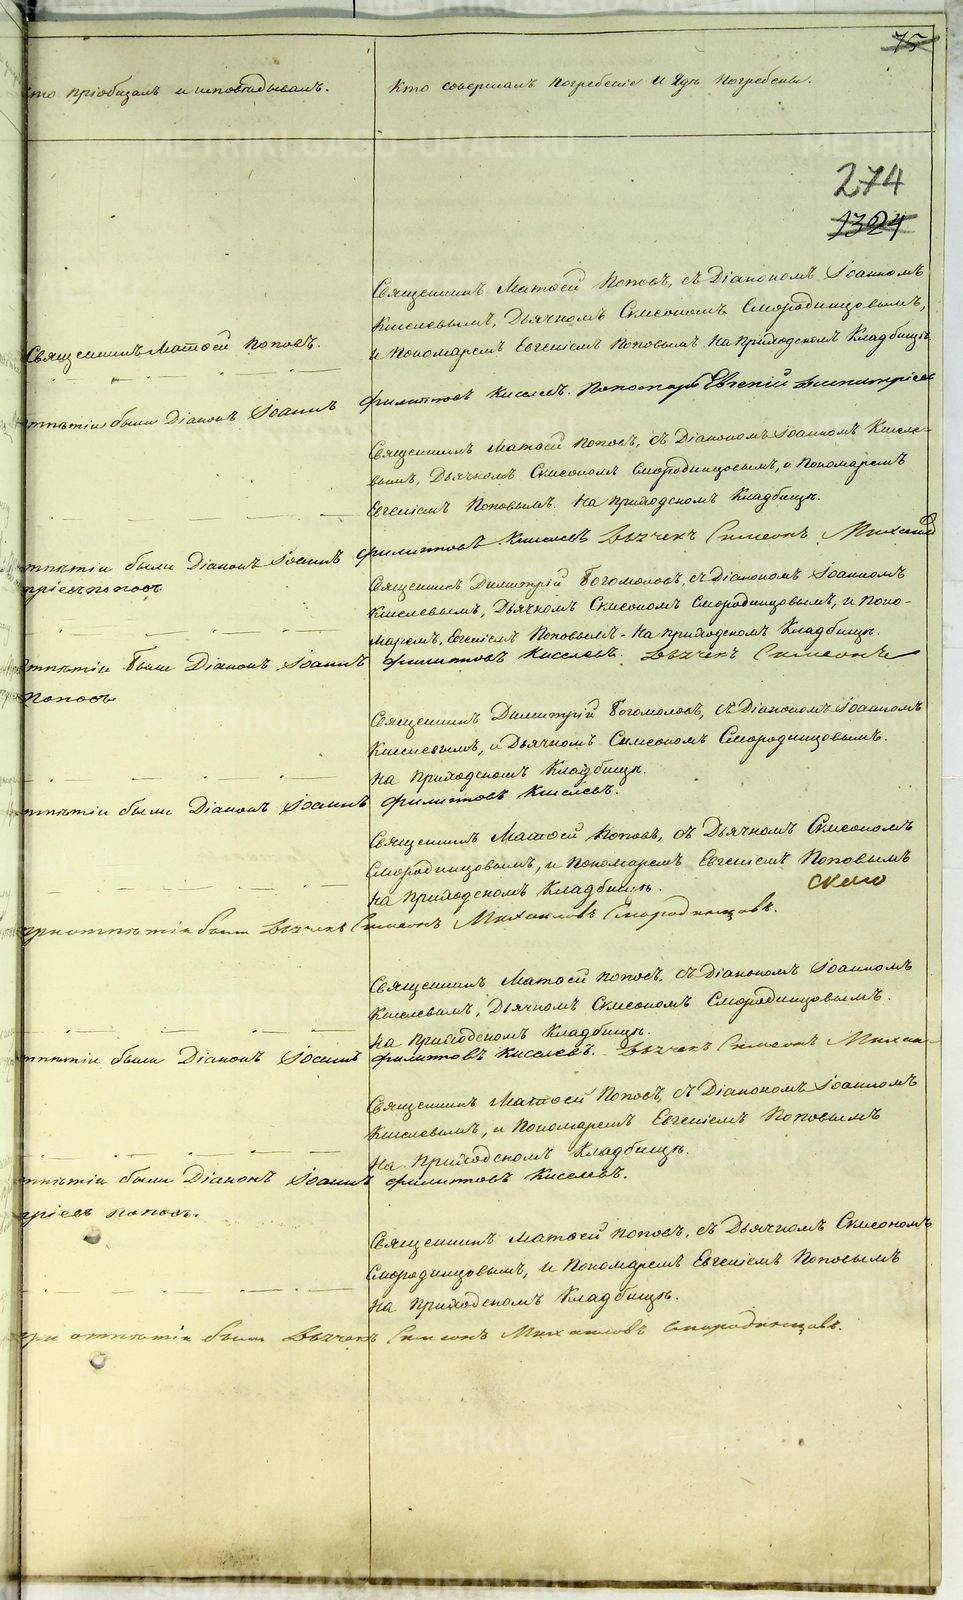 75
Кто пріобщалъ и исповѣдывалъ.
Кто совершалъ погребеніе и гдѣ погребены.
274
1324
Священникъ Матѳей Поповъ, съ Діакономъ Іоанномъ
Киселевымъ, Дьячкомъ Симеономъ Смородинцовымъ,
Священникъ Матѳей Поповъ.
и Пономаремъ Евгеніемъ Поповымъ. На приходскомъ Кладбищѣ.
отпѣтіи были Діаконъ Іоаннъ Филипповъ Киселевъ. Пономарь Евгеній Димитріевъ
Священникъ Матѳей Поповъ, съ Діакономъ Іоанномъ Киселе-
вымъ, Дьячкомъ Симеономъ Смородинцовымъ, и Пономаремъ
Евгеніемъ Поповымъ. На приходскомъ Кладбищѣ.
отпѣтіи были Діаконъ Іоаннъ Филипповъ Киселевъ Дьячекъ Симеонъ Михаил
тріевъ Поповъ
Священникъ Димитрій Богомоловъ, съ Діакономъ Іоанномъ
Киселевымъ, Дьячкомъ Симеономъ Смородинцовымъ, и Поно-
маремъ, Евгеніемъ Поповымъ. На приходскомъ Кладбищѣ.
отпѣтіи были Діаконъ Іоаннъ Филипповъ Киселевъ. Дьячекъ Симеонъ
Поповъ
Священникъ Димитрій Богомоловъ, съ Діакономъ Іоанномъ
Киселевымъ, и Дьячкомъ Симеономъ Смородинцовымъ.
На приходскомъ Кладбищѣ.
отпѣтіи были Діаконъ Іоаннъ Филипповъ Киселевъ.
Священникъ Матѳей Поповъ, съ Дьячкомъ Симеономъ
Смородинцовымъ, и Пономаремъ Евгеніемъ Поповымъ
На приходскомъ Кладбищѣ.
при отпѣтіи былъ Дьячекъ Симеонъ Михаиловъ Смородинцовъ.
Священникъ Матѳей Поповъ. съ Діакономъ Іоанномъ
Киселевымъ, Дьячкомъ Симеономъ Смородинцовымъ.
На приходскомъ Кладбищѣ.
отпѣтіи были Діаконъ Іоаннъ Филипповъ Киселевъ. Дьячекъ Симеонъ Михаи
Священникъ Матѳей Поповъ, съ Діакономъ Іоанномъ
Киселевымъ, и Пономаремъ Евгеніемъ Поповымъ
На приходскомъ Кладбищѣ.
отпѣтіи были Діаконъ Іоаннъ Филипповъ Киселевъ.
тріевъ Поповъ.
Священникъ Матѳей Поповъ, съ Дьячкомъ Симеономъ
Смородинцовымъ, и Пономаремъ Евгеніемъ Поповымъ
На приходскомъ Кладбищѣ.
при отпѣтіи былъ Дьячекъ Симеонъ Михаиловъ Смородинцовъ.